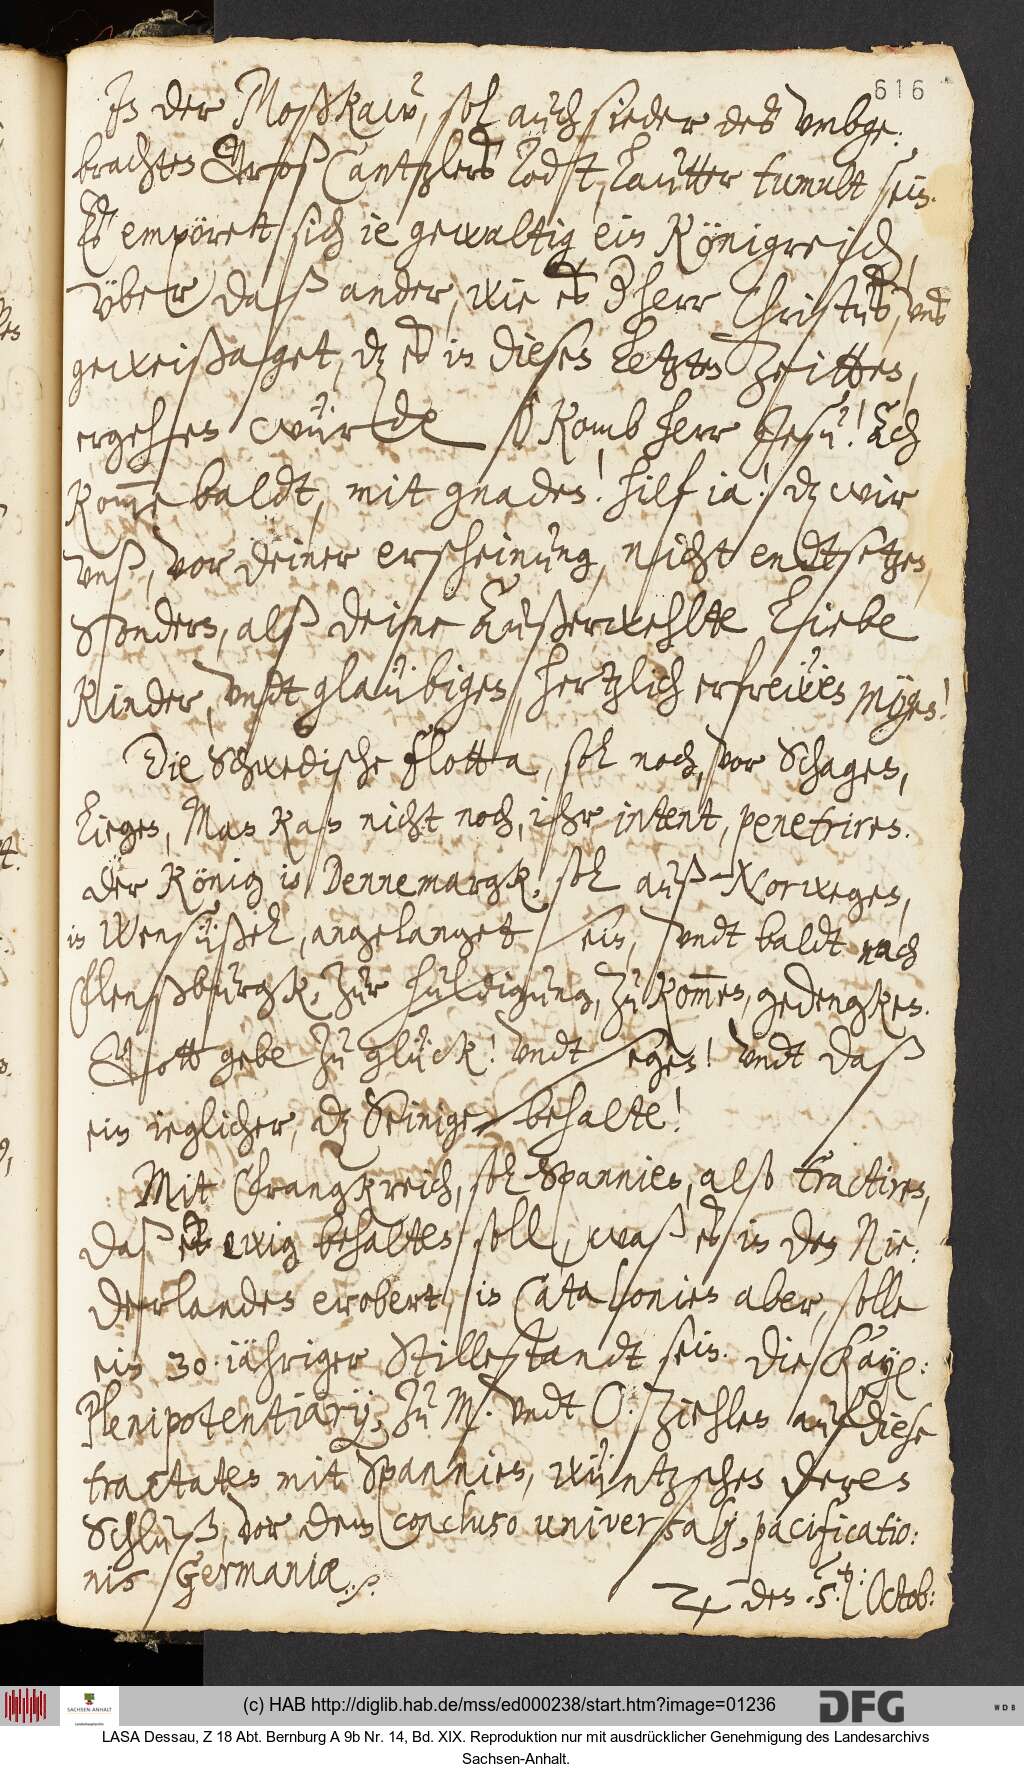 616
In der Moßkaw, sol auch sieder des vmbge:
brachten Groß Cantzlers Todt, lautter tumult sein.
Es empöret sich ie gewaltig ein Königreich,
über daß ander, wie es d herr Christus, vns
geweißaget, dz es in diesen letzten Zeitten,
ergehen würde. O Komb herr Jesu! Ach
komme baldt, mit gnaden! hilf ia! dz wir
vnß, vor deiner erscheinung, nicht endtsetzen,
Sondern, alß deine Außerwehlte Liebe
Kinder, vndt glaübigen, hertzlich erfrewen mögen!
Die Schwedische flotta, sol noch, vor Schagen,
liegen, Man kan nicht noch, ihr intent, penetriren.
Der König in Dennemargk, sol auß Norwegen,
in Wensüßel, angelanget sein, vndt baldt nach
Flenßburgk, zur huldigung, zu kommen, gedengken.
Gott gebe zu glück! vndt segen! vndt daß
ein ieglicher, dz Seinige behalte!
Mit Frangkreich, sol Spannien, also tractiren,
daß es ewig behalten soll, waß es in den Nie:
derlanden erobert, in Catalonien aber, solle
ein 30. iähriger Stillestandt sein. Die Kay:
Plenipotentiarij, zu M. vndt O. Ziehlen auf diese
tractaten mit Spannien, wüntzschen deren
Schluß, vor dem concluso universalj, pacificatio:
nis Germaniæ.
♃ den .5. Octob:
(c) HAB http://diglib.hab.de/mss/ed000238/start.htm?image=01236
SACHSEN-ANHALT
DFG
WDB
LASA Dessau, Z 18 Abt. Bernburg A 9b Nr. 14, Bd. XIX. Reproduktion nur mit ausdrücklicher Genehmigung des Landesarchivs
Sachsen-Anhalt.